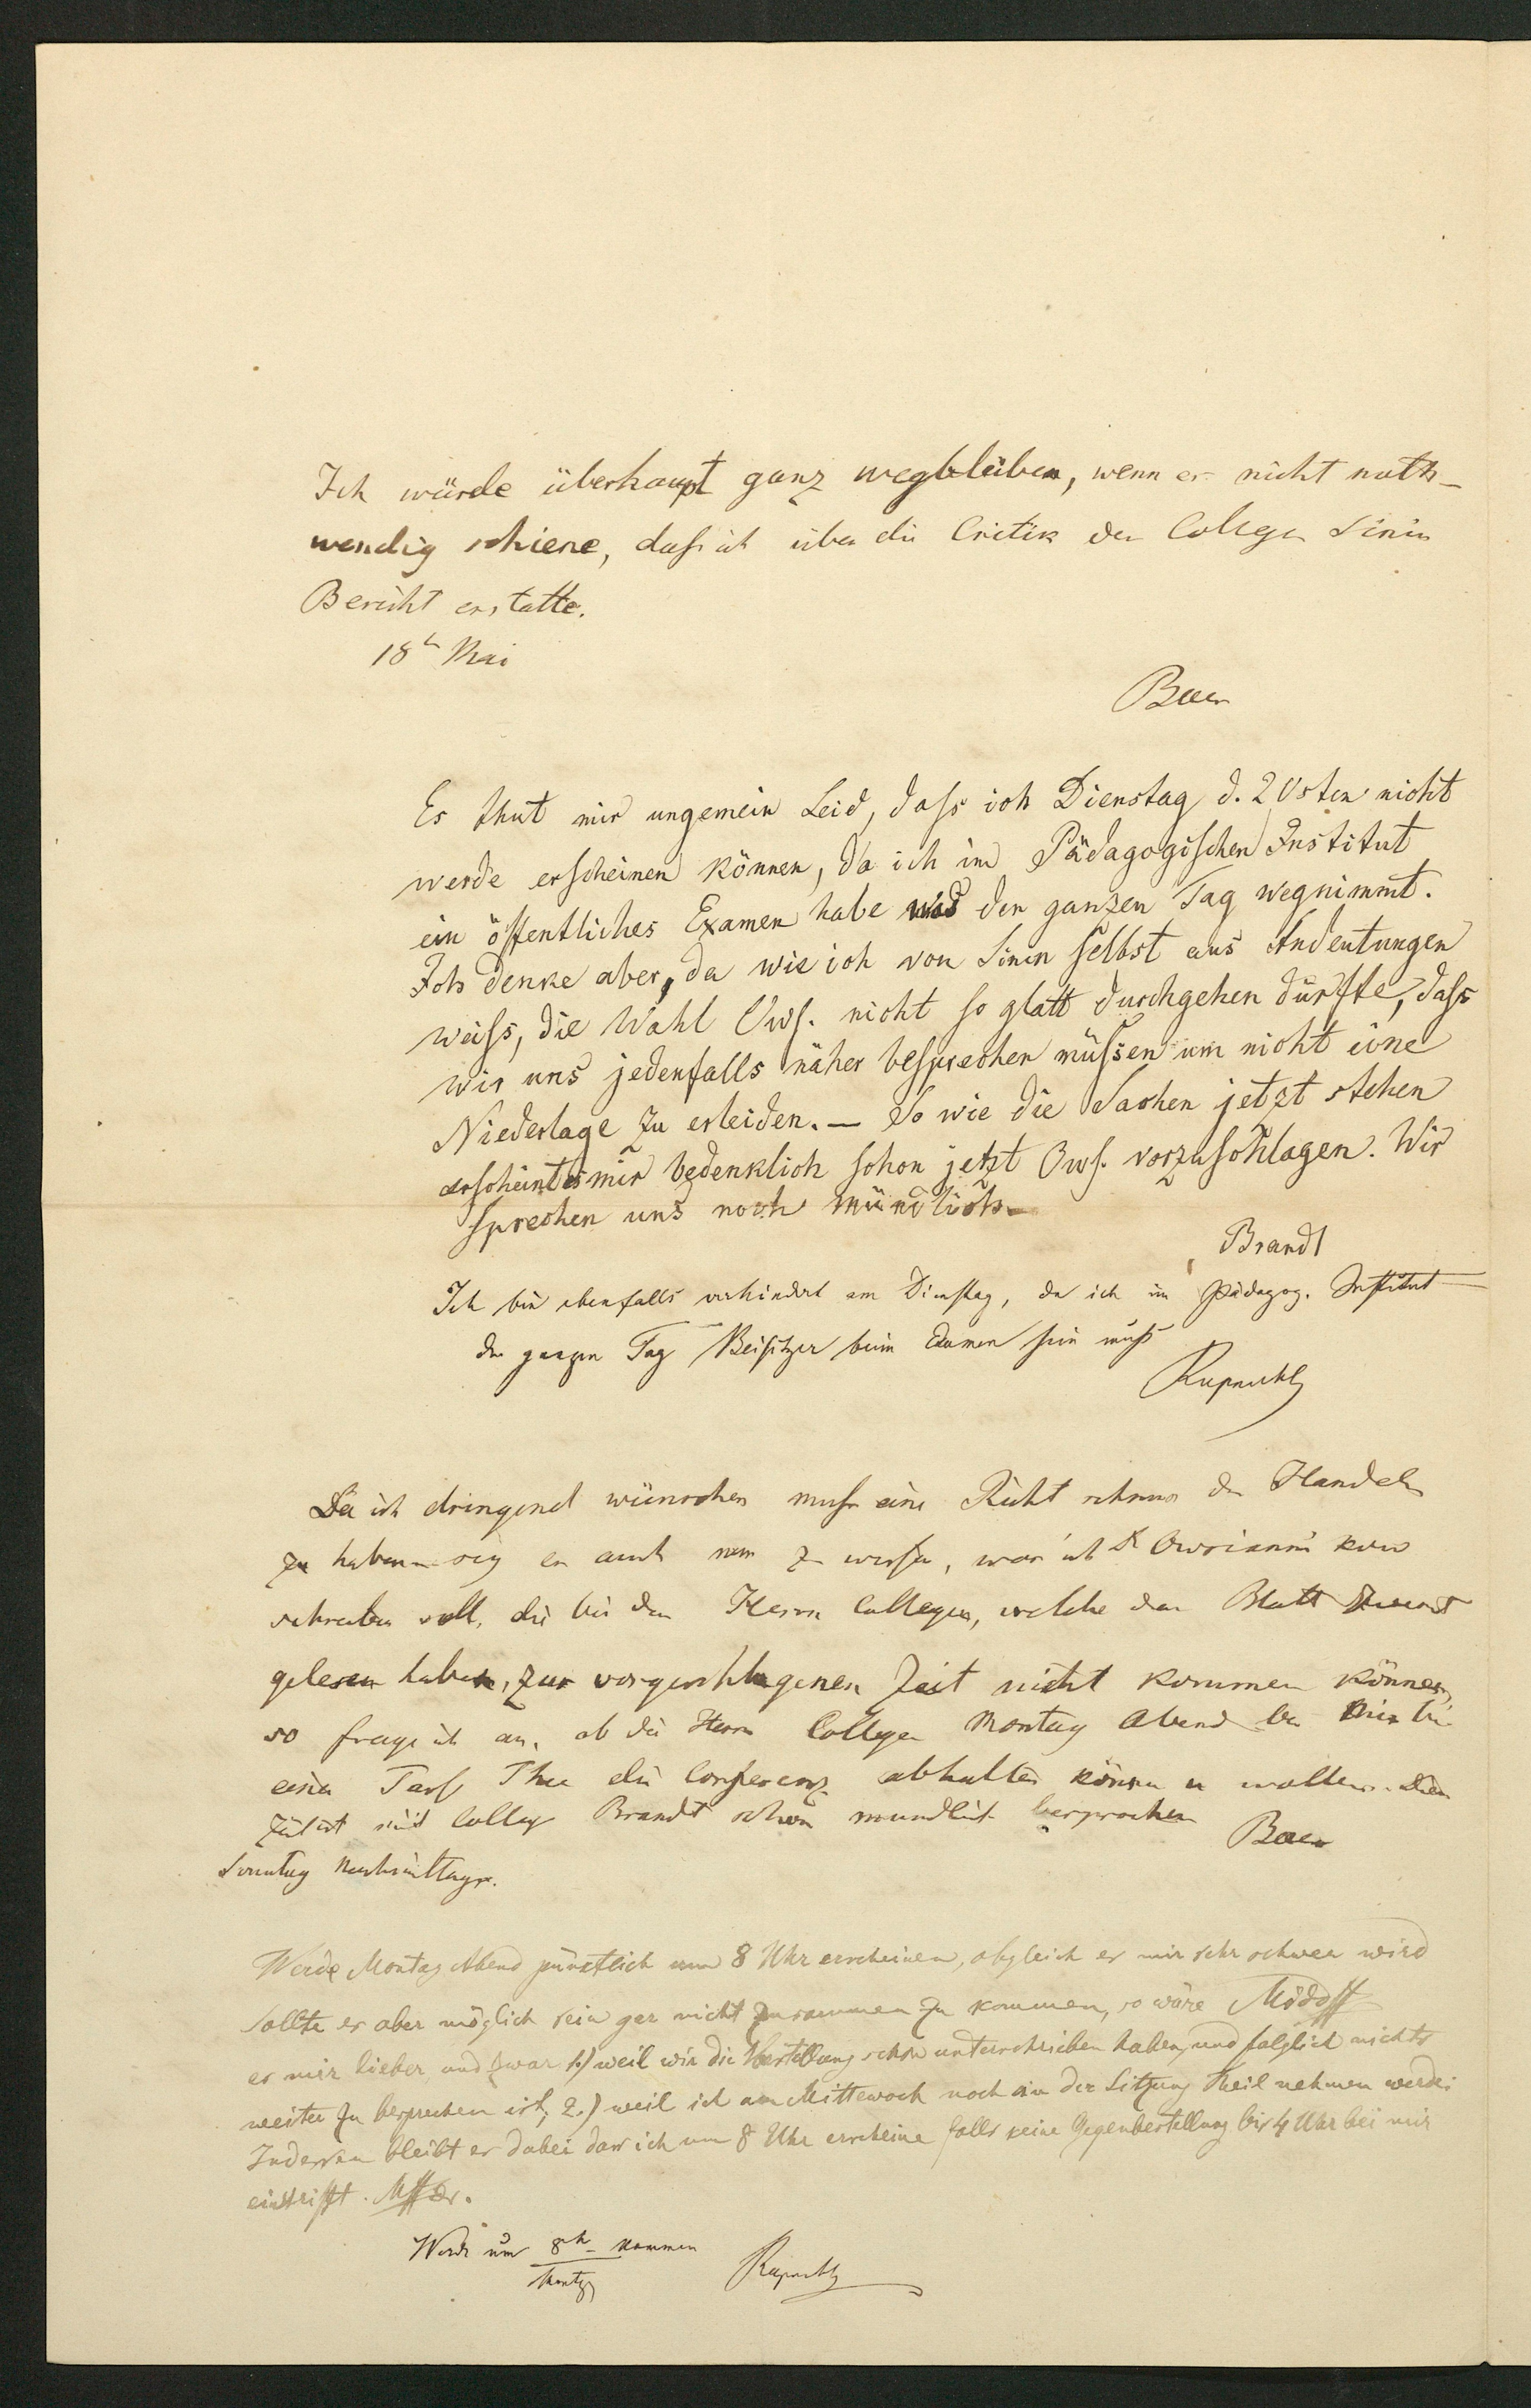 Ich würde überhaupt ganz wegbleiben, wenn es nicht noth-
wendig schiene, dass ich über die Critik des Collegen Sinin
Bericht erstatte.
18ten Mai
Baer
Es thut mir ungemein Leid, dass ich Dienstag d. 20sten nicht
werde erscheinen können, da ich im Pädagogischen Institut
ein öffentliches Examen habe was den ganzen Tag wegnimmt.
Ich denke aber, da wie ich von Sinin selbst aus Andeutungen
weiss, die Wahl Ows. nicht so glatt durchgehen dürfte, dass
wir uns jedenfalls näher besprechen müssen um nicht eine
Niederlage zu erleiden. — So wie die Sachen jetzt stehen
erscheint es mir bedenklich schon jetzt Ows. vorzuschlagen. Wir
sprechen uns noch mündlich.
Brandt
Ich bin ebenfalls verhindert am Dienstag, da ich im Pädagog. Institut
den ganzen Tag Beisitzer beim Examen sein muss
Ruprecht
Da ich dringend wünschen muss eine Richtschnur des Handelns
zu haben sey es auch nur zu wissen, was ich Dr Owsiannikow
schreiben soll, die beiden Herrn Collegen, welche das Blatt zuerst
gelesen haben, zur vorgeschlagenen Zeit nicht kommen können,
so frage ich an, ob die Herrn Collegen Montag Abend bei mir bei
einer Tasse Thee die Conferenz abhalten können u wollen. Die
Zeit ist mit College Brandt schon mündlich besprochen
Baer
Sonntag Nachmittags.
Werde Montag Abend pünktlich um 8 Uhr erscheinen, obgleich es mir sehr schwer wird
Sollte es aber möglich sein gar nicht zusammen zu kommen, so wäre Mddff
es mir lieber und zwar 1.) weil wir die Vorstellung schon unterschrieben haben, und folglich nichts
weiter zu besprechen ist, 2.) weil ich am Mittewoch noch an der Sitzung Theil nehmen werde.
Indessen bleibt es dabei das ich um 8 Uhr erscheine falls keine Gegenbestellung bis 4 Uhr bei mir
eintrifft.
Werde um 8h kommen
Montag
Ruprecht